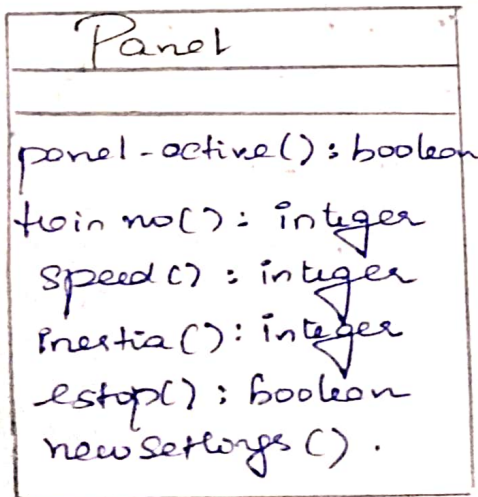 Panel
panel-active() : boolean
train no() : integer
speed() : integer
inertia() : integer
estop() : boolean
new settings() .